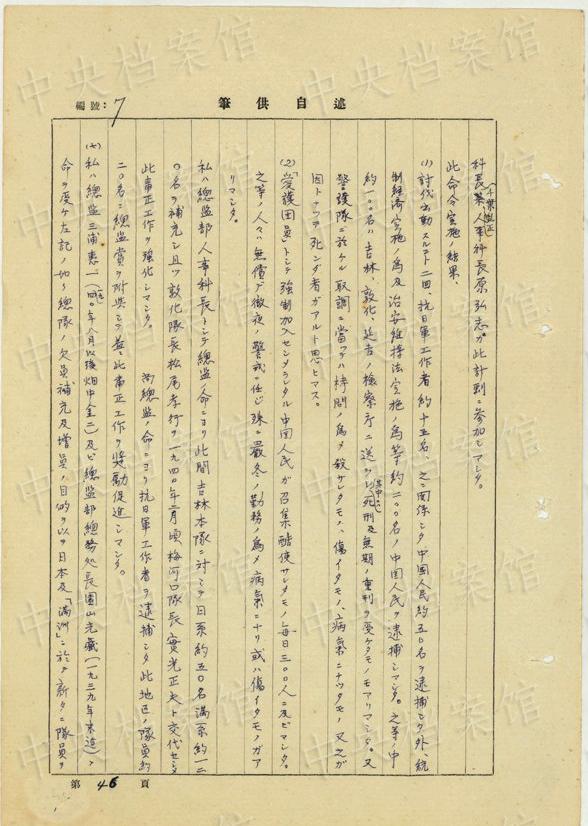 述自供筆
編號：7
科長兼人事科長原弘志ガ此計劃ニ参加シマシタ。
此命令実施ノ結果、
(1) 討伐出動スルコト二回抗日軍工作者約十五名、之ニ関係シタ中国人民約五〇名ヲ逮捕シタ外、統
制経済実施ノ為及治安維持法実施ノ為等約二〇〇名ノ中国人民ヲ逮捕シマシタ。之等ノ中
約一〇〇名ハ吉林、敦化、延吉ノ検察庁ニ送ラレ死刑及無期ノ重刑ヲ受ケタモノモアリマシタ。又
警護隊ニ於ケル取調ニ当ツテハ拷問ノ為メ殺サレタモノ、傷イタモノ、病気ニナツタモノ又之ガ
因トナツテ死ンダ者ガアルト思ヒマス。
(2)「愛護団員」トシテ強制加入センメラレタル中国人民ガ召集酷使サレタモノ毎日三〇〇人ニ及ビマシタ。
之等ノ人々ハ無償デ徹夜ノ警戒ニ任ジ殊ニ厳冬ノ勤務ノ為メ病気ニナリ或ハ傷イタモノガア
リマシタ。
私ハ総監部人事科長トシテ総監ノ命ニヨリ此間吉林本隊ニ対シテ日系約五〇名満系約一二
〇名ヲ補充シ且ツ敦化隊長松尾孝行ヲ一九四〇年二月頃梅河口隊長實光正夫ト交代セシメ
此粛正工作ヲ強化シマシタ。尚総監ノ命ニヨリ抗日軍工作者ヲ逮捕シタ此地区ノ隊員約
二〇名ニ総監賞ヲ附與シテ益々此粛正工作ヲ奨勵促進シマシタ。
(七) 私ハ総監三浦惠一(一九四〇年八月以後畑中金二)及ビ総監部總務処長園山光蔵(一九三九年末迄)ノ
命ヲ受ケ左記ノ如ク總隊ノ欠員補充及増員ノ目的ヲ以テ日本及「満洲」ニ於テ新タニ隊員ヲ
第 46 頁
中央档案馆